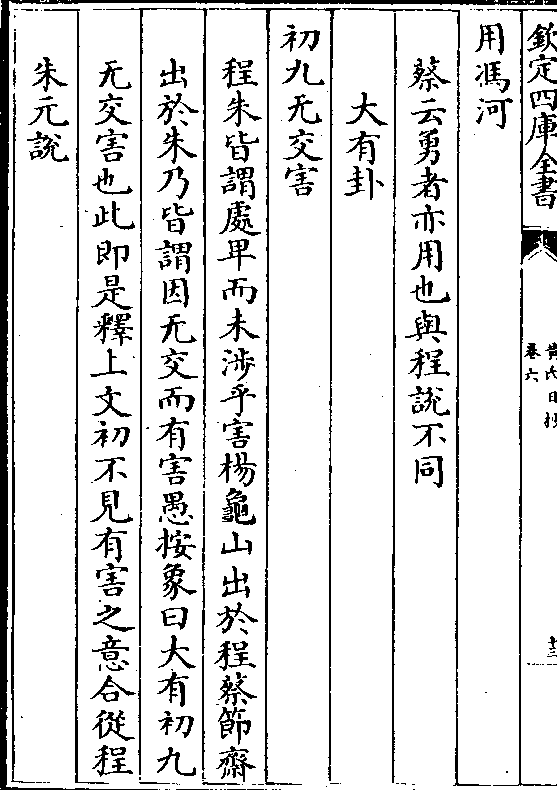 欽定四庫全書
黄氏日抄
卷六
十三
用馮河
蔡云勇者亦用也與程說不同
大有卦
初九无交害
程朱皆謂處卑而未涉乎害楊龜山出於程蔡節齋
出於朱乃皆謂因无交而有害愚按象曰大有初九
无交害也此即是釋上文初不見有害之意合從程
朱元說